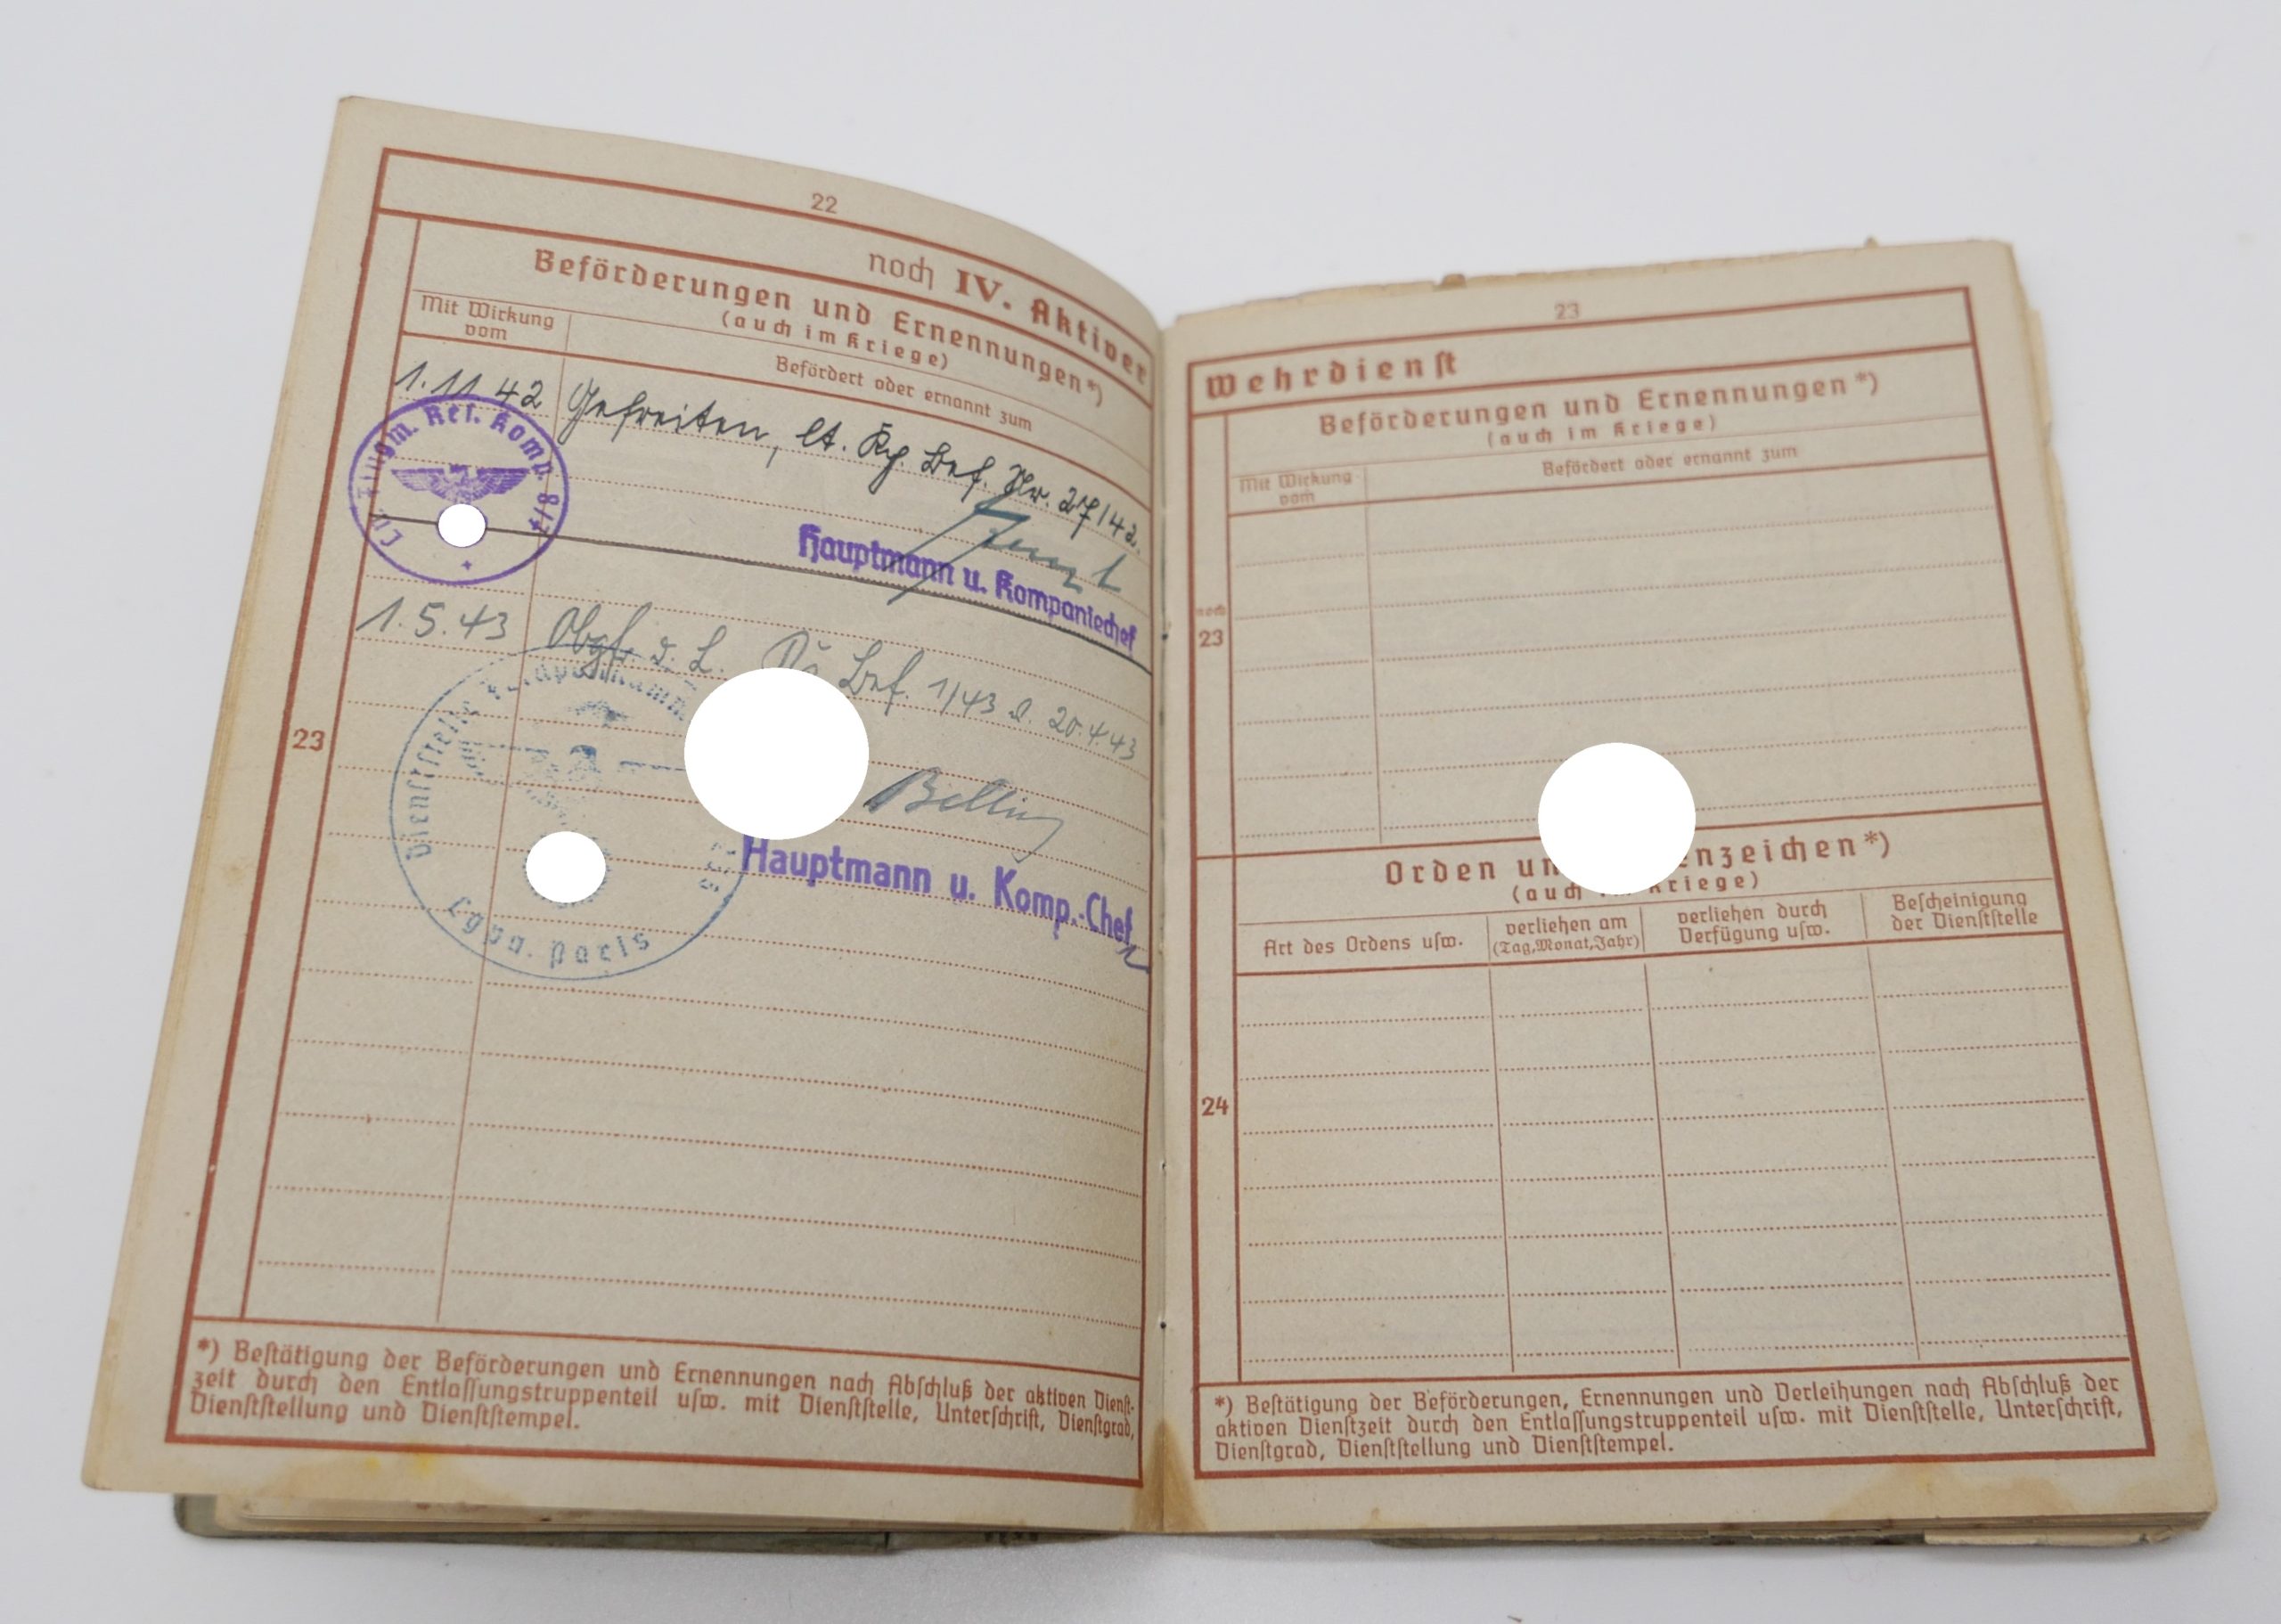 22
noch IV. Aktiver
Beförderungen und Ernennungen *)
(auch im Kriege)
Mit Wirkung vom
Befördert oder ernannt zum
1.11 42 Gefreiten, lt. Kp. Bef. Nr. 27/42.
Flugm. Res. Komp.
Hauptmann u. Kompaniechef
1.5.43 Obgfr. d. L. Bef. 1/43 v. 20.4.43
Dienststelle
Lgpa. Paris
Belling
Hauptmann u. Komp.-Chef
23
*) Bestätigung der Beförderungen und Ernennungen nach Abschluß der aktiven Dienst-
zeit durch den Entlassungstruppenteil usw. mit Dienststelle, Unterschrift, Dienstgrad,
Dienststellung und Dienststempel.
23
Wehrdienst
Beförderungen und Ernennungen *)
(auch im Kriege)
Mit Wirkung vom
Befördert oder ernannt zum
noch
23
Orden un enzeichen *)
(auch Kriege)
Art des Ordens usw.
verliehen am
(Tag, Monat, Jahr)
verliehen durch
Verfügung usw.
Bescheinigung
der Dienststelle
24
*) Bestätigung der Beförderungen, Ernennungen und Verleihungen nach Abschluß der
aktiven Dienstzeit durch den Entlassungstruppenteil usw. mit Dienststelle, Unterschrift,
Dienstgrad, Dienststellung und Dienststempel.